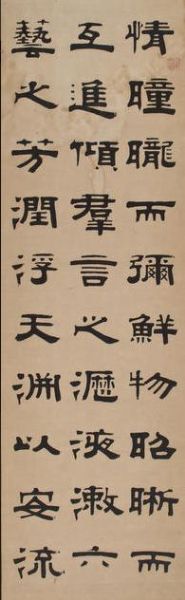 情曈曨而彌鮮物昭晰而
互進傾羣言之瀝液漱六
藝之芳潤浮天淵以安流